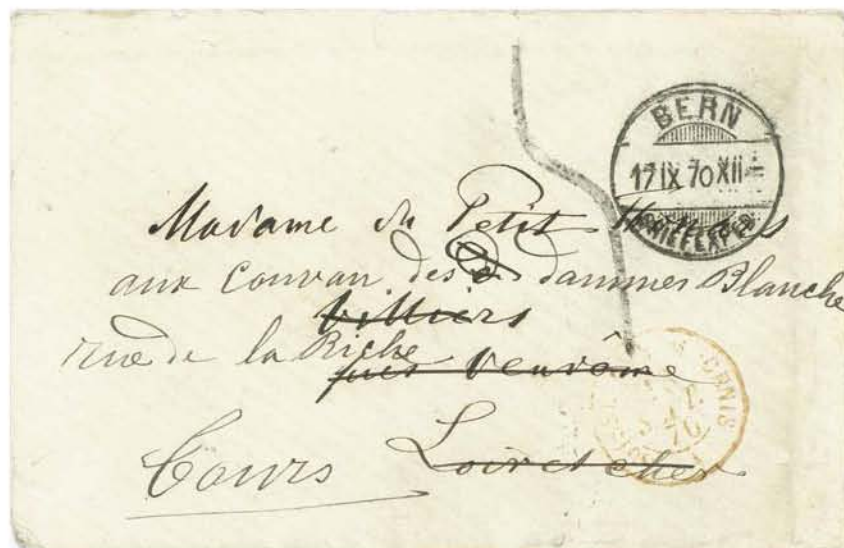 BERN
17 IX 70 XII
BRIEFEXPED
Madame du Petit
aux Couvan des dammes Blanche
Villiers
rue de la Riche
près Vendôme
Tours
Loir et cher
CENIS
70